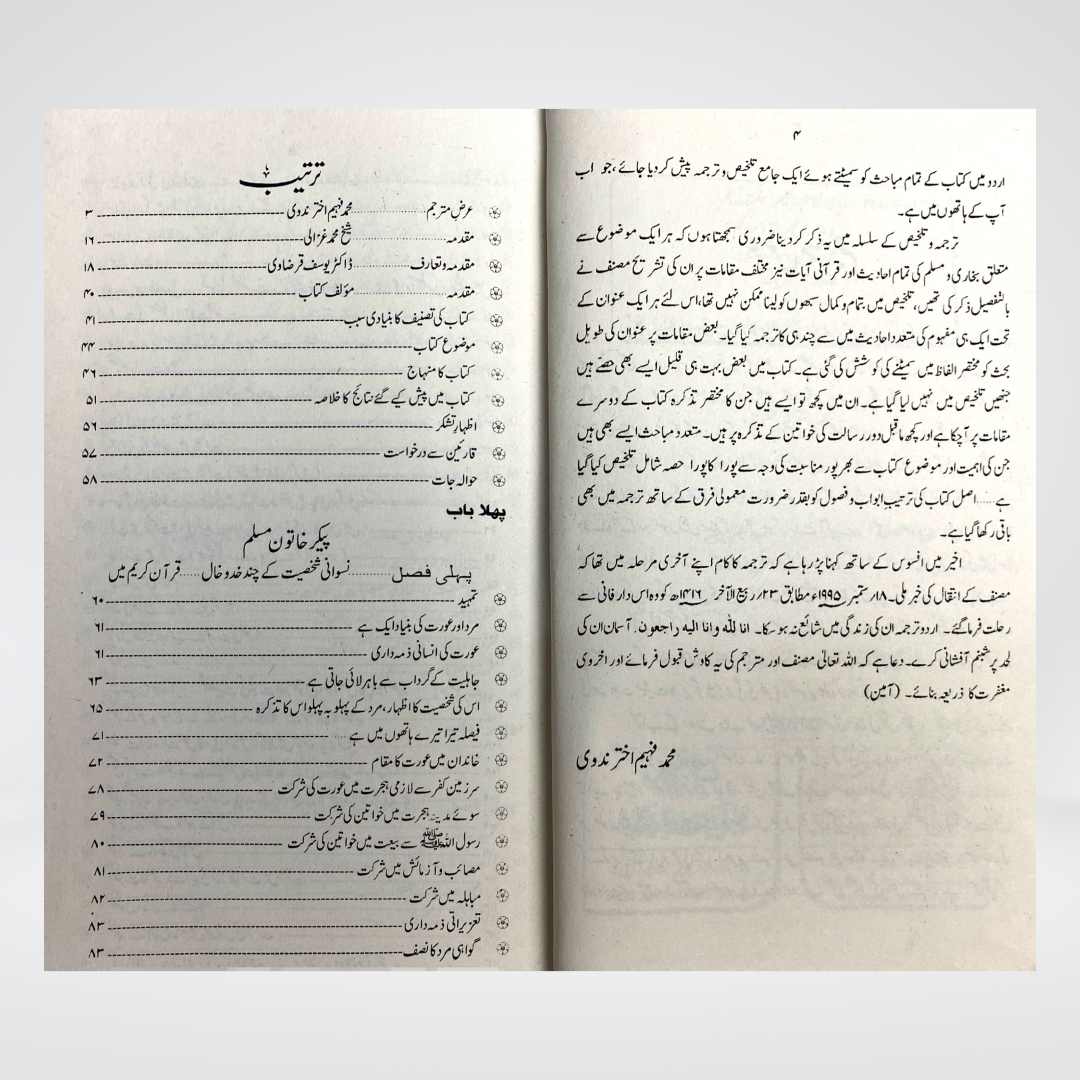 ۴
اردو میں کتاب کے تمام مباحث کو سمیٹتے ہوئے ایک جامع تلخیص و ترجمہ پیش کر دیا جائے، جو اب
آپ کے ہاتھوں میں ہے۔
ترجمہ و تلخیص کے سلسلہ میں یہ ذکر کر دینا ضروری سمجھتا ہوں کہ ہر ایک موضوع سے
متعلق بخاری و مسلم کی تمام احادیث اور قرآنی آیات نیز مختلف مقامات پر ان کی تشریح مصنف نے
بالتفصیل ذکر کی تھیں، تلخیص میں بتمام و کمال سبھوں کو لینا ممکن نہیں تھا، اس لئے ہر ایک عنوان کے
تحت ایک ہی مفہوم کی متعدد احادیث میں سے چند ہی کا ترجمہ کیا گیا۔ بعض مقامات پر عنوان کی طویل
بحث کو مختصر الفاظ میں سمیٹنے کی کوشش کی گئی ہے۔ کتاب میں بعض بہت ہی قلیل ایسے بھی حصّے ہیں
جنھیں تلخیص میں نہیں لیا گیا ہے۔ ان میں کچھ تو ایسے ہیں جن کا مختصر تذکرہ کتاب کے دوسرے
مقامات پر آچکا ہے اور کچھ ماقبل دور رسالت کی خواتین کے تذکرہ پر ہیں۔ متعدد مباحث ایسے بھی ہیں
جن کی اہمیت اور موضوع کتاب سے بھرپور مناسبت کی وجہ سے پورا کا پورا حصہ شامل تلخیص کیا گیا
ہے..... اصل کتاب کی ترتیب ابواب و فصول کو بقدر ضرورت معمولی فرق کے ساتھ ترجمہ میں بھی
باقی رکھا گیا ہے۔
اخیر میں افسوس کے ساتھ کہنا پڑ رہا ہے کہ ترجمہ کا کام اپنے آخری مرحلہ میں تھا کہ
مصنف کے انتقال کی خبر ملی۔ ۱۸؍ ستمبر ۱۹۹۵ء مطابق ۲۳؍ ربیع الآخر ۱۴۱۶ھ کو وہ اس دار فانی سے
رحلت فرما گئے۔ اردو ترجمہ ان کی زندگی میں شائع نہ ہو سکا۔ انا للّٰہ وانا الیہ راجعون۔ آسمان ان کی
لحد پر شبنم آفشانی کرے۔ دعا ہے کہ اللہ تعالیٰ مصنف اور مترجم کی یہ کاوش قبول فرمائے اور اخروی
مغفرت کا ذریعہ بنائے۔ (آمین)
محمد فہیم اختر ندوی
ترتیب
عرض مترجم ........ محمد فہیم اختر ندوی ---- ۳
مقدمہ ........ شیخ محمد غزالی ---- ۱۶
مقدمہ و تعارف ........ ڈاکٹر یوسف قرضاوی ---- ۱۸
مقدمہ ........ مؤلف کتاب ---- ۴۰
کتاب کی تصنیف کا بنیادی سبب ---- ۴۱
موضوع کتاب ---- ۴۴
کتاب کا منہاج ---- ۴۶
کتاب میں پیش کیے گئے نتائج کا خلاصہ ---- ۵۱
اظہار تشکر ---- ۵۶
قارئین سے درخواست ---- ۵۷
حوالہ جات ---- ۵۸
پھلا باب
پیکر خاتون مسلم
پہلی فصل ........ نسوانی شخصیت کے چند خدوخال ..... قرآن کریم میں
تمہید ---- ۶۰
مرد اور عورت کی بنیاد ایک ہے ---- ۶۱
عورت کی انسانی ذمہ داری ---- ۶۱
جاہلیت کے گرداب سے باہر لائی جاتی ہے ---- ۶۳
اس کی شخصیت کا اظہار، مرد کے پہلو بہ پہلو اس کا تذکرہ ---- ۶۵
فیصلہ تیرا تیرے ہاتھوں میں ہے ---- ۷۱
خاندان میں عورت کا مقام ---- ۷۲
سرزمین کفر سے لازمی ہجرت میں عورت کی شرکت ---- ۷۸
سوئے مدینہ ہجرت میں خواتین کی شرکت ---- ۷۹
رسول اللہ ﷺ سے بیعت میں خواتین کی شرکت ---- ۸۰
مصائب و آزمائش میں شرکت ---- ۸۱
مباہلہ میں شرکت ---- ۸۲
تعزیراتی ذمہ داری ---- ۸۳
گواہی مرد کا نصف ---- ۸۳